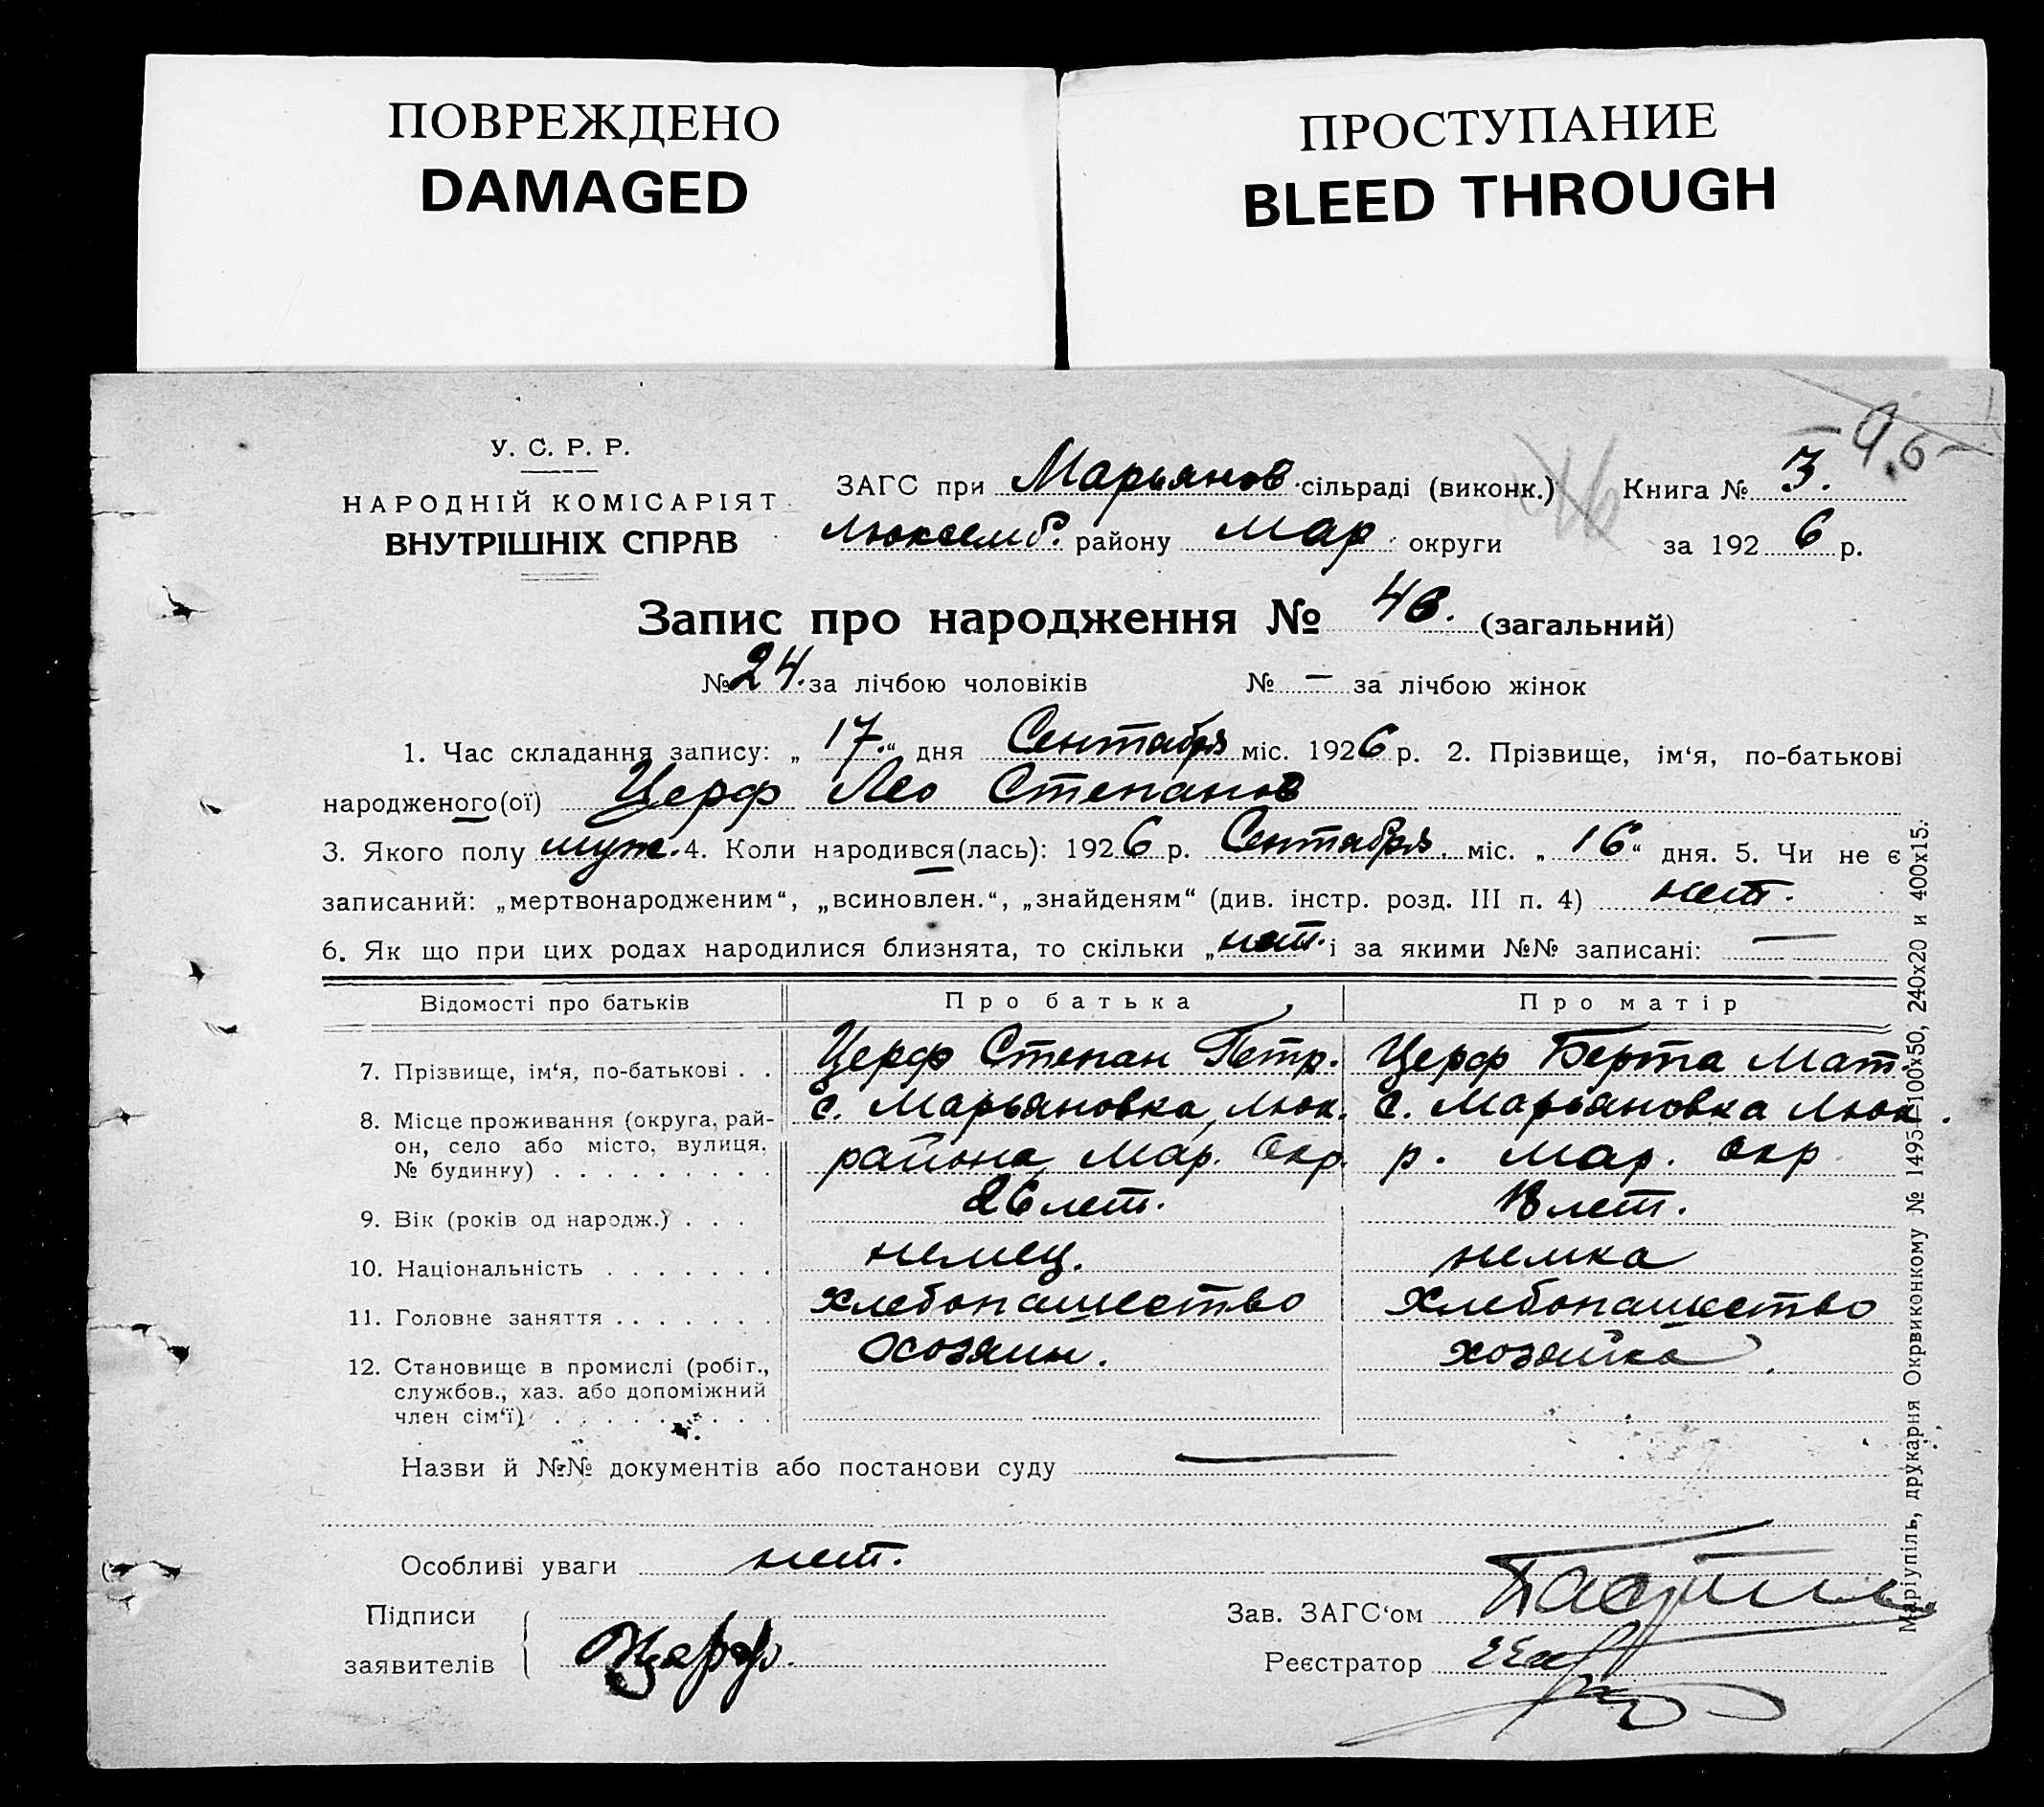 ПОВРЕЖДЕНО
DAMAGED
ПРОСТУПАНИЕ
BLEED THROUGH
У. С. Р. Р.
НАРОДНІЙ КОМІСАРІЯТ
ВНУТРІШНІХ СПРАВ
ЗАГС при Марьянов сільраді (виконк.) Книга № 3.
Люксемб. району Мар округи за 1926 р.
Запис про народження № 48. (загальний)
№ 24. за лічбою чоловіків № — за лічбою жінок
1. Час складання запису: „17.“ дня Сентября міс. 1926 р. 2. Прізвище, ім‘я, по-батькові
народженого(ої) Церф Лео Степанов
3. Якого полу муж. 4. Коли народився(лась): 1926 р. Сентября міс. „16“ дня. 5. Чи не є
записаний: „мертвонародженим“, „всиновлен.“, „знайденям“ (див. інстр. розд. III п. 4) нет.
6. Як що при цих родах народилися близнята, то скільки „нет. і за якими №№ записані: —
Відомості про батьків Про батька Про матір
7. Прізвище, ім‘я, по-батькові . . Церф Степан Петр. Церф Берта Мат.
8. Місце проживання (округа, рай- с. Марьяновка, Люк. с. Марьяновка Люк.
он, село або місто, вулиця, района, Мар. Окр. р. Мар. Окр
№ будинку) . . . . . . . . .
9. Вік (років од народж.) . . . 26 лет. 18 лет.
10. Національність . . . . . . . немец. немка
11. Головне заняття . . . . . . . хлебопашество хлебопашество
12. Становище в промислі (робіт., хозяин. хозяйка.
службов., хаз. або допоміжний
член сім‘ї) . . . . . . . . .
Назви й №№ документів або постанови суду —
Особливі уваги нет.
Підписи
заявителів Церф.
Зав. ЗАГС‘ом
Реєстратор
Маріупіль, друкарня Окрвиконкому № 1495—100х50, 240х20 и 400х15.